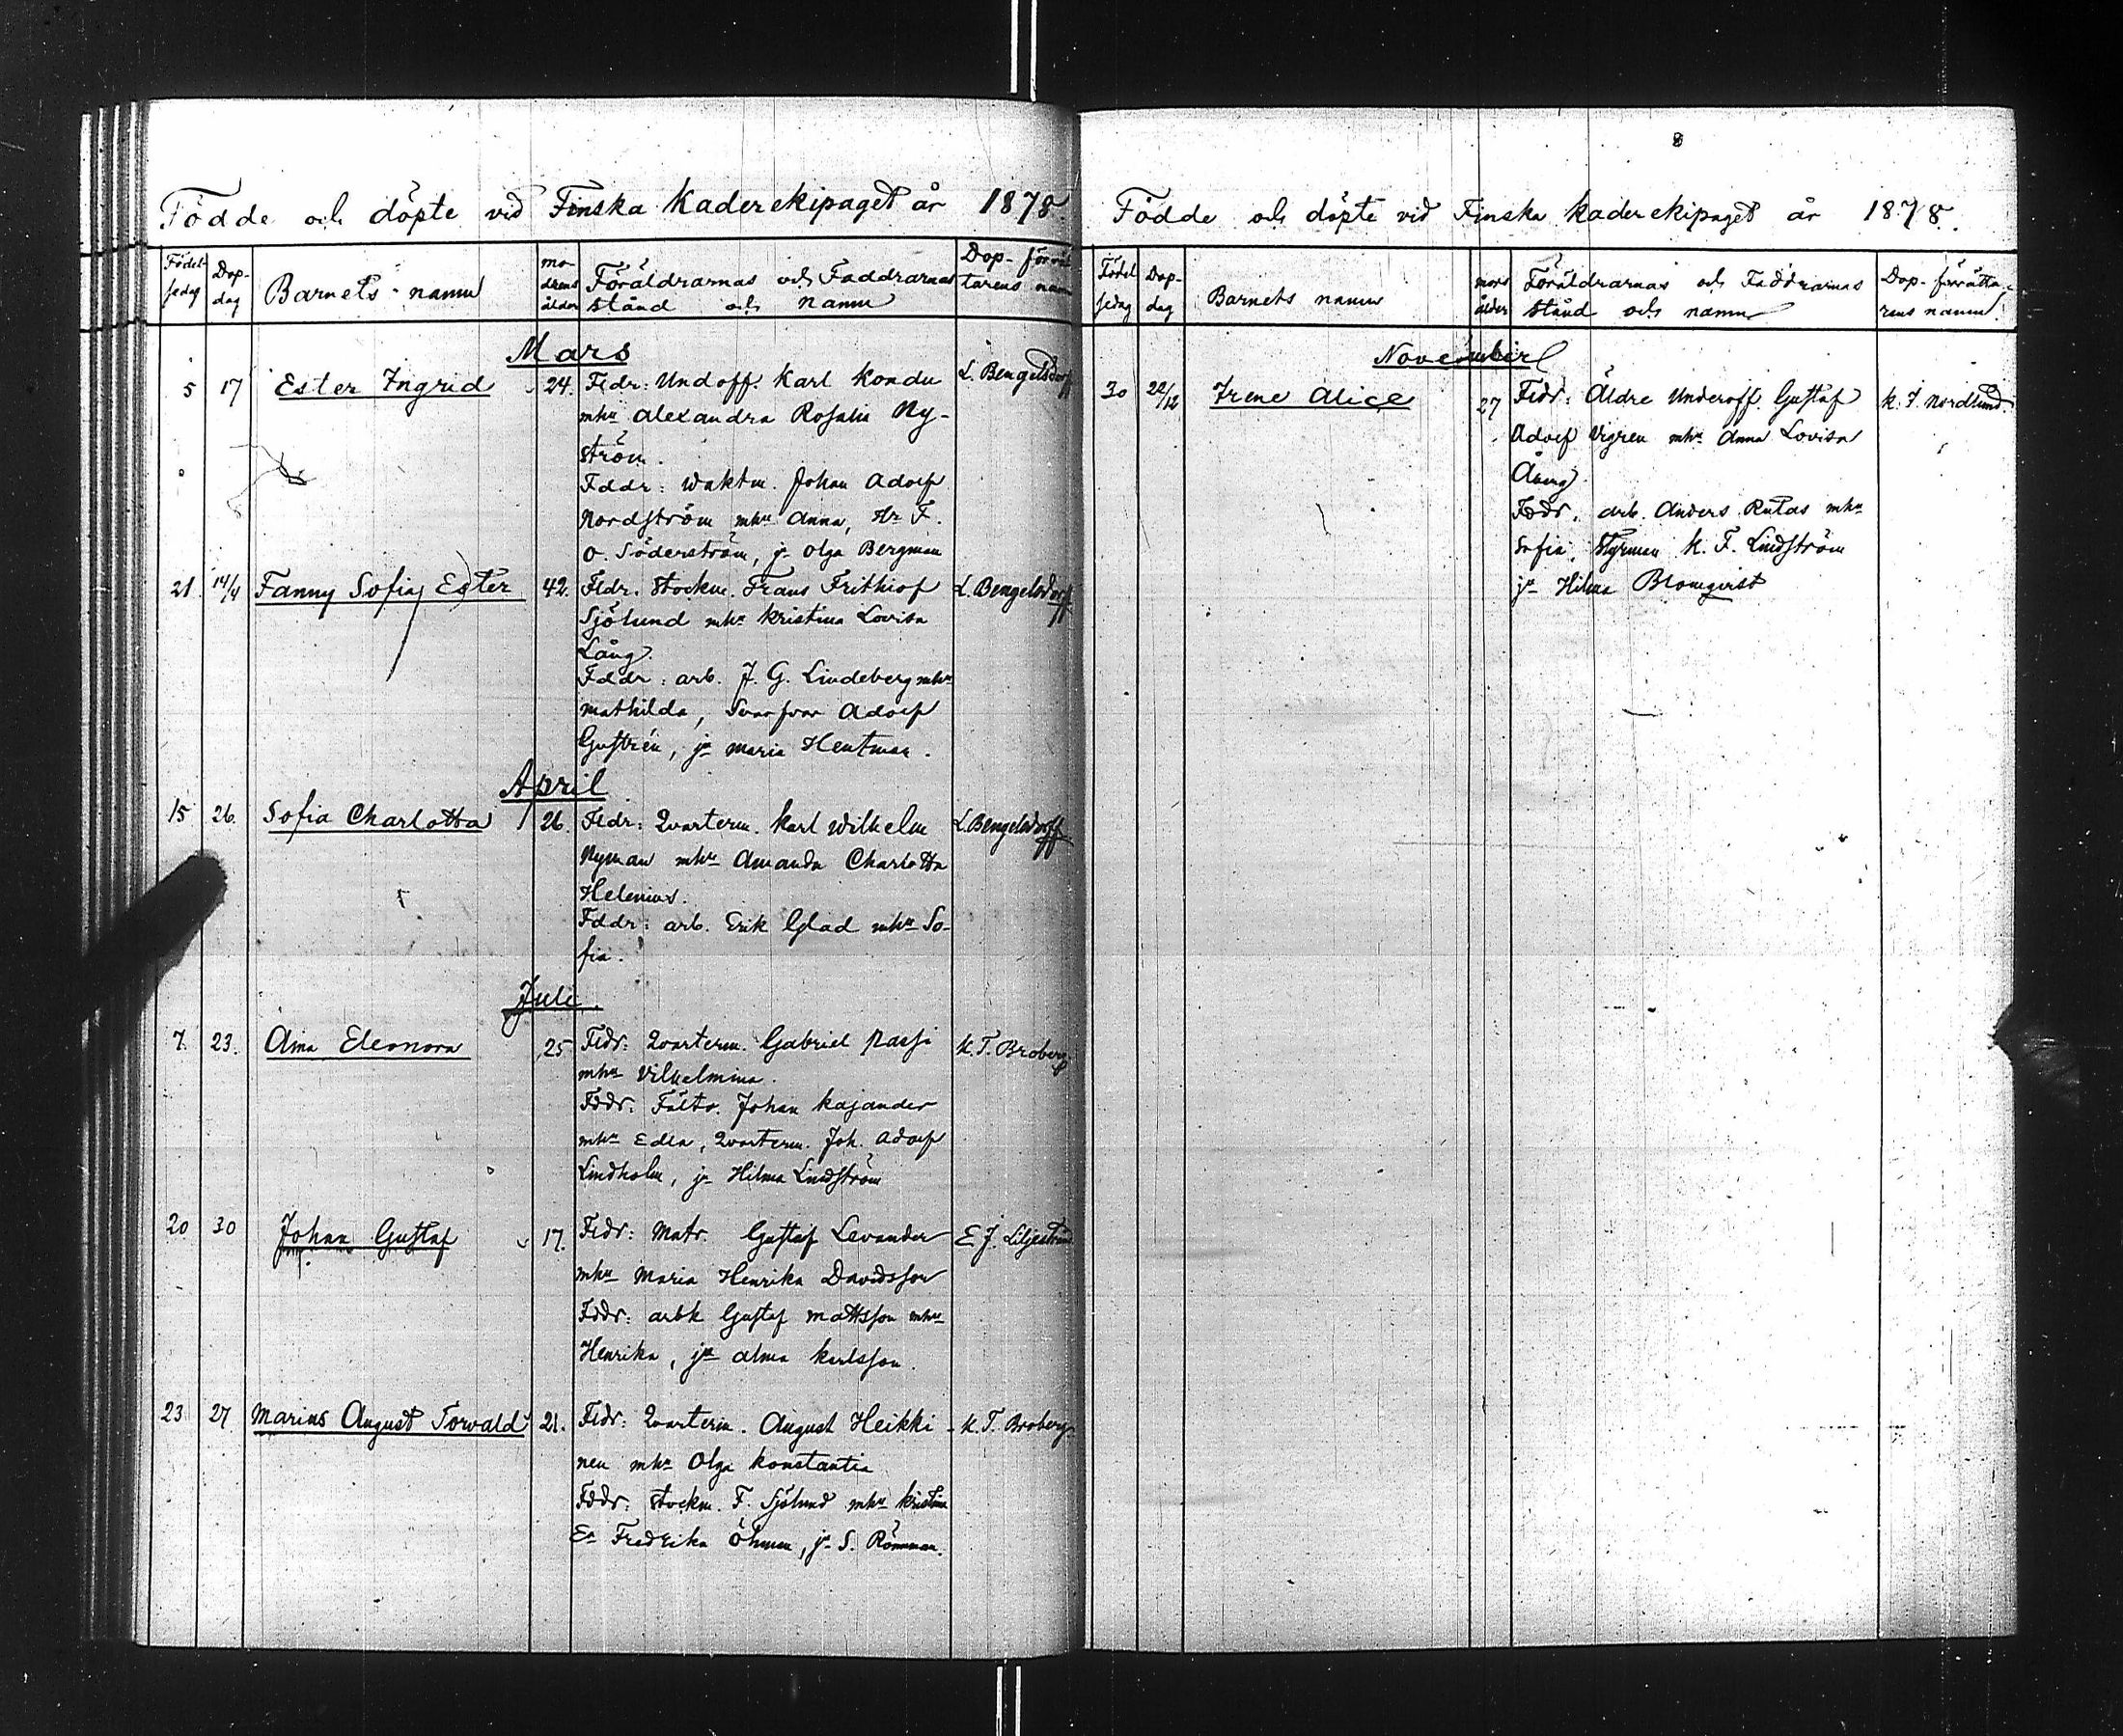 Födde och döpte vid Finska Kaderekipaget år 1878.
Födel-
sedag
Dop-
dag
Barnets namn
mo-
drens
ålder
Föräldrarnas och Faddrarnas
stånd och namn
Dop-förrät
tarens namn
Mars
5 17 Ester Ingrid 24. Fldr: Undoff. Karl Kondu L. Bengelsdorff
mhu Alexandra Rosalie Ny-
ström.
Fddr: Waktm. Johan Adolf
Nordström mhu Anna, Hr F.
O. Söderström, jr Olga Bergman
21. 14/4 Fanny Sofia Ester 42. Fldr. Stockm. Frans Frithiof L. Bengelsdorff
Sjölund mhu Kristina Lovisa
Lång.
Fddr: arb. J. G. Lindeberg mhu
Mathilda, Svarfvar Adolf
Gustrén, jr Maria Hentman.
April
15 26. Sofia Charlotta 26. Fldr: Qvarterm. Karl Wilhelm L. Bengelsdorff
Nyman mhu Amanda Charlotta
Helenius.
Fddr: arb. Erik Glad mhu So-
fia.
Juli.
7. 23. Aina Eleonora 25 Fldr: Qvarterm. Gabriel Passi K. T. Broberg
mhu Vilhelmina.
Fddr: Fältv. Johan Kajander
mhu Edla, Qvarterm. Joh. Adolf
Lindholm, jr Hilma Lindström
20 30 Johan Gustaf 17. Fldr: Matr. Gustaf Levander E. J. Liljestrand
mhu Maria Henrika Davidsson
Fddr: arbk Gustaf Mattsson mhu
Henrika, jr Alma Karlsson.
23 27 Marius August Torwald 21. Fldr: Qvarterm. August Heikki- K. T. Broberg
nen mhu Olga Konstantia
Fddr: Stockm. F. Sjölund mhu Kristina
Ea Fredrika Öhman, jr S. Rönnman.
8
Födde och döpte vid Finska Kaderekipaget år 1878.
Födel
sedag
Dop-
dag
Barnets namn
mors
ålder
Föräldrarnas och Faddrarnas
stånd och namn
Dop-förrätta-
rens namn.
November
30 22/12 Irene Alice 27 Fldr: Äldre Underoff. Gustaf K. F. Nordlund.
Adolf Vigren mhu Anna Lovisa
Åberg.
Fddr. arb. Anders Rutas mhu
Sofia, Styrman K. F. Lindström
jr Hilma Blomqvist